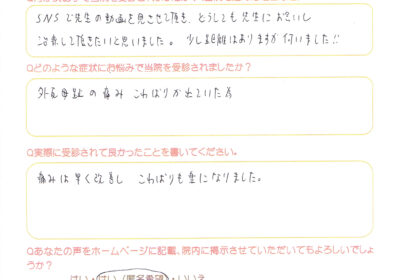 SNSで先生の動画を見させて頂き、どうしても先生にお会いし
治療して頂きたいと思いました。少し距離はありますが伺いました!!
Qどのような症状にお悩みで当院を受診されましたか?
外反母趾の痛み こわばりが出ていた為
Q実際に受診されて良かったことを書いてください。
痛みは早く改善し こわばりも楽になりました。
Qあなたの声をホームページに記載、院内に掲示させていただいてもよろしいでしょ
うか?
はい・はい(匿名希望)・いいえ